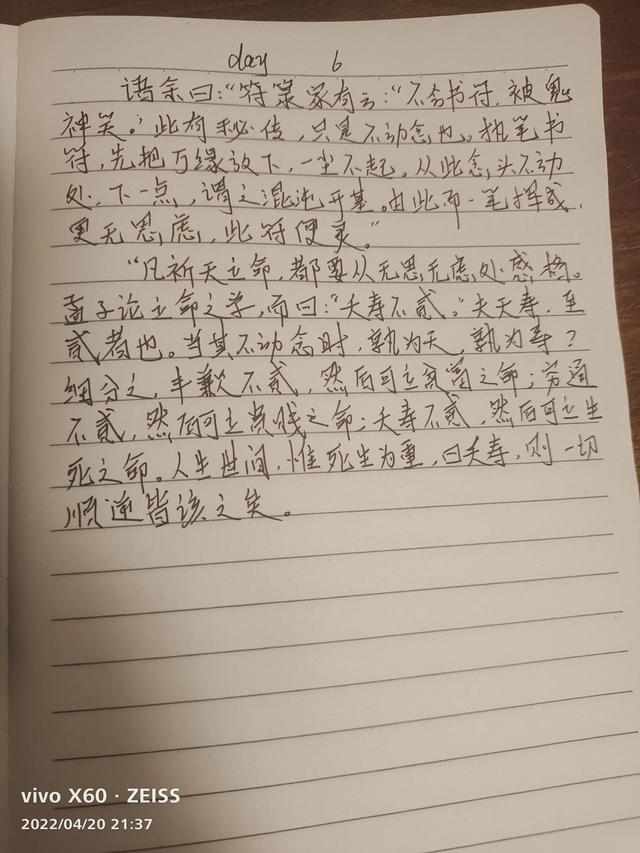 day 6
语余曰："符箓家有云："不会书符，被鬼
神笑。'此有秘传，只是不动念也。执笔书
符，先把万缘放下，一尘不起。从此念头不动
处，下一点，谓之混沌开基。由此而一笔挥成，
更无思虑，此符便灵。"
"凡祈天立命，都要从无思无虑处感格。
孟子论立命之学，而曰："夭寿不贰。"夫夭寿，至
贰者也。当其不动念时，孰为夭，孰为寿？
细分之，丰歉不贰，然后可立贫富之命；穷通
不贰，然后可立贵贱之命；夭寿不贰，然后可立生
死之命。人生世间，惟死生为重，曰夭寿，则一切
顺逆皆该之矣。
vivo X60 · ZEISS
2022/04/20 21:37